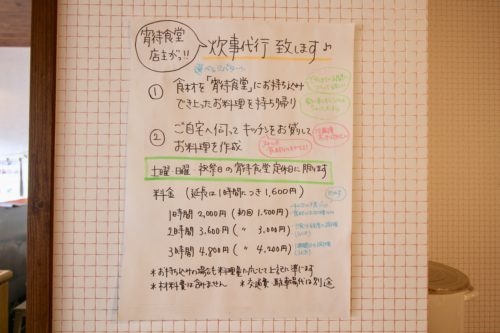 宵待食堂
店主が!!
炊事代行 致します♪
選べる2パターン
① 食材を「宵待食堂」にお持ち込み
でき上ったお料理を持ち帰り
② ご自宅へ伺ってキッチンをお貸しして
お料理を作成
土曜・日曜 祝祭日の宵待食堂定休日に限ります
料金 (延長は1時間につき1,600円)
1時間 2,000円 (初回1,500円)
2時間 3,600円 (〃 3,000円)
3時間 4,800円 (〃 4,200円)
*お持ち込みの場合も料理量に応じて上記に準じます
*材料費は含みません *交通費・駐車場代は別途